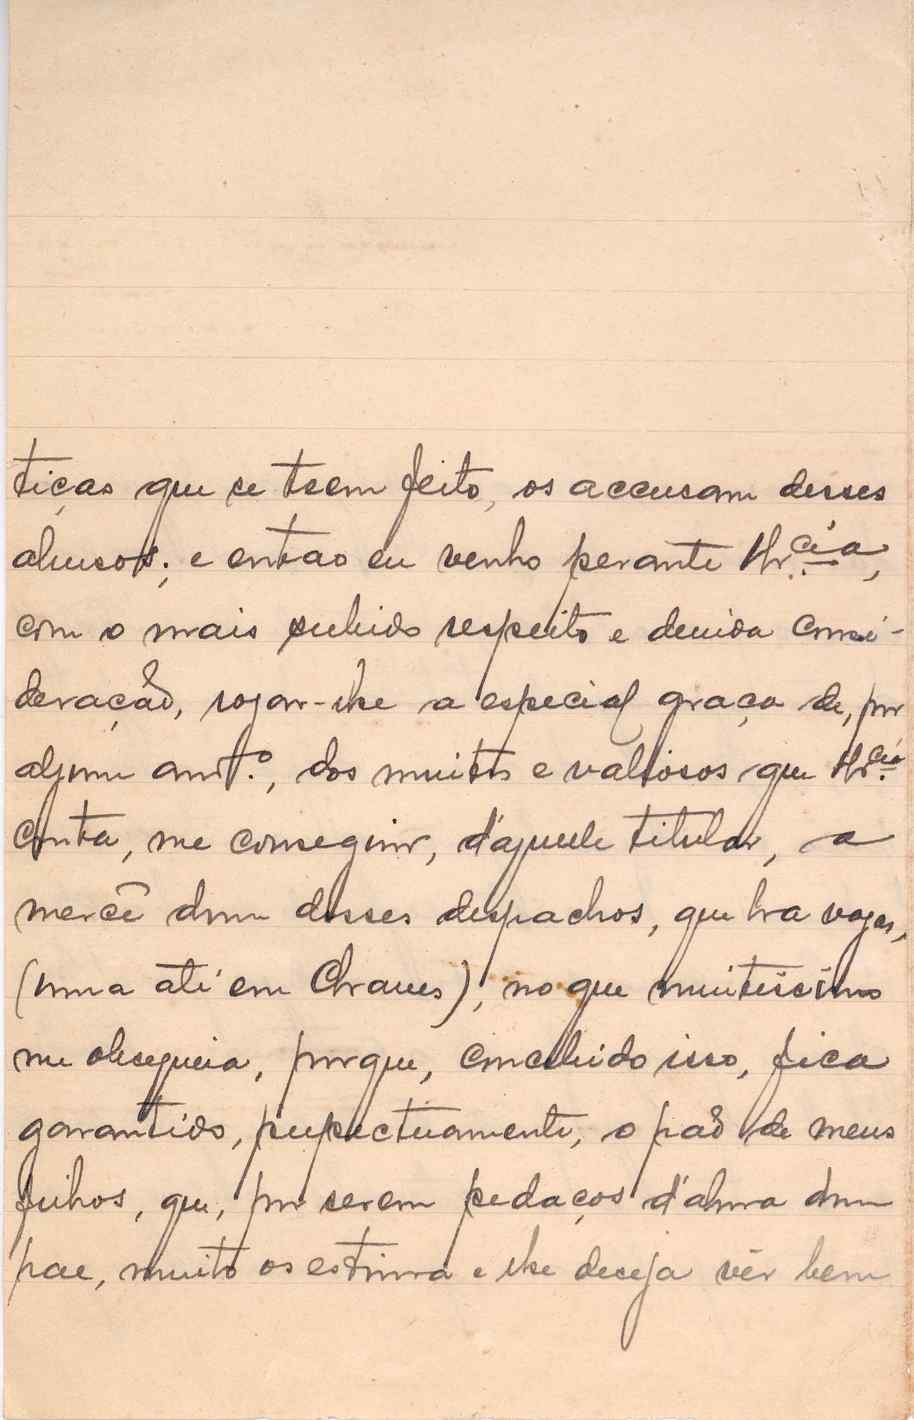 tiças que se teem feito, os accusam desses
abusos; e entao eu venho perante
com o mais subido respeito e devida consi-
deração, rogar-lhe a especial graça de, por
algum am.º, dos muitos e valiosos que
conta, me conseguir, d'aquelle titular, a
mercê dum desses despachos, que ha vagas,
(uma até em Chaves), no que muitissimo
me obsequeia, porque, concebido isso, fica
garantido, perpectuamente, o paõ de meus
filhos, que, por serem pedaços d'alma dum
pae, muito os estima e lhe deseja vêr bem